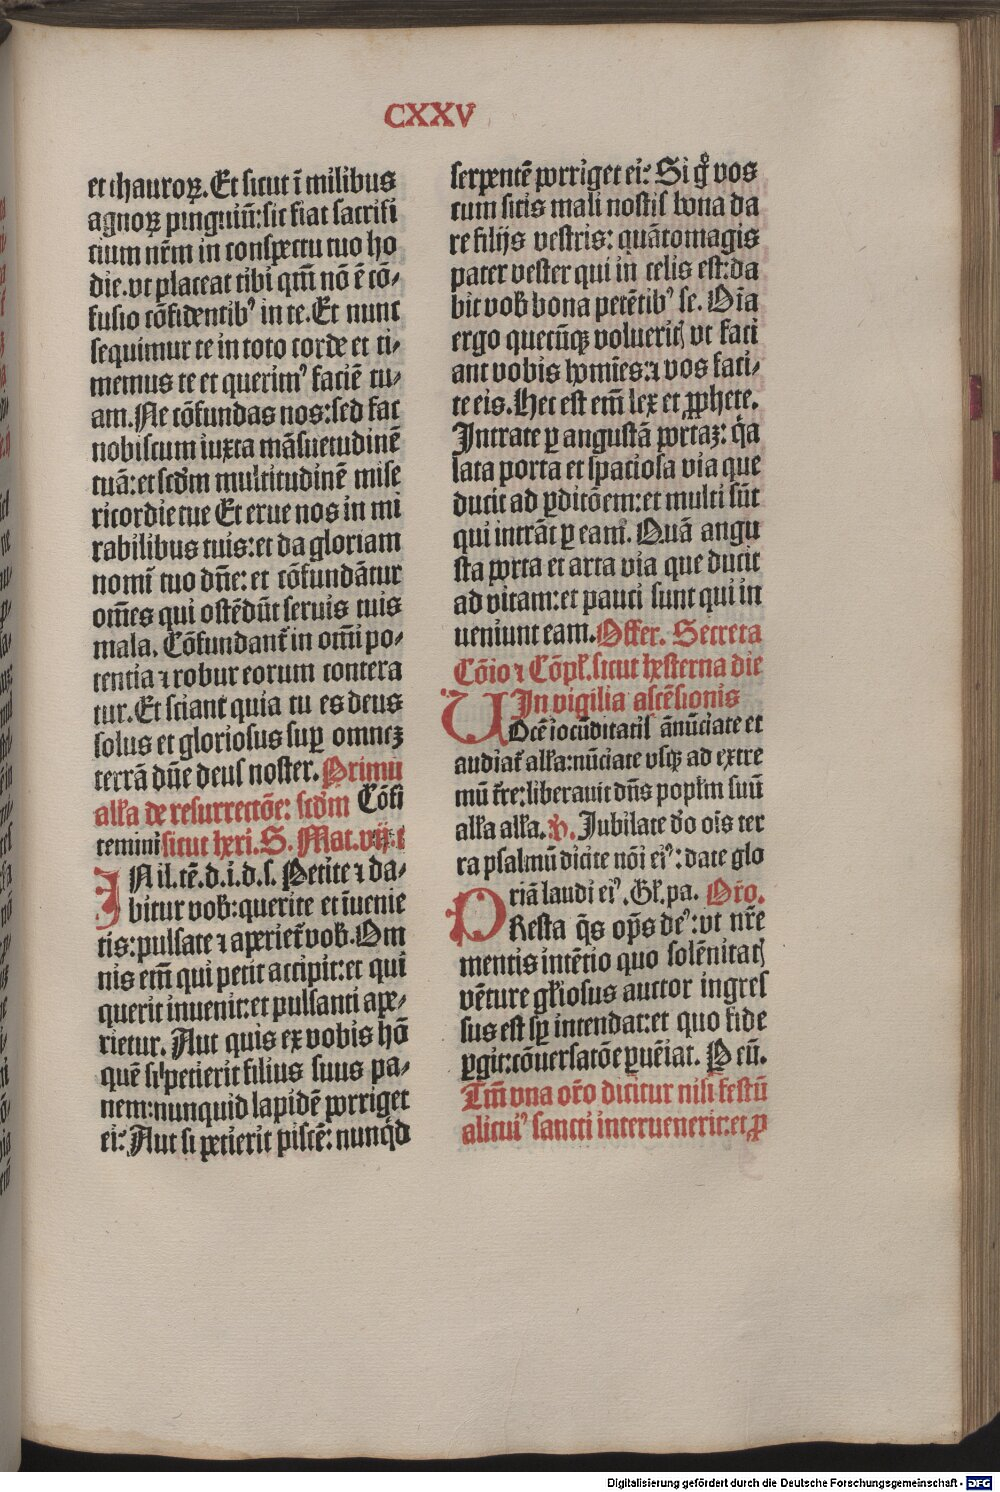 CXXV
et thauroꝝ. Et sicut ī milibus
agnoꝝ pinguiū: sit fiat sacrifi
cium nr̄m in conspectu tuo ho
die. vt placeat tibi qm̄ nō ē cō⸗
fusio cōfidentibꝰ in te. Et nunc
sequimur te in toto corde et ti⸗
memus te et querimꝰ faciē tu⸗
am. Ne cōfundas nos: sed fac
nobiscum iuxta māsuetudinē
tuā: et scd̄m multitudinē mise
ricordie tue Et erue nos in mi
rabilibus tuis: et da gloriam
nomī tuo dn̄e: et cōfundātur
om̄es qui ostēdūt seruis tuis
mala. Cōfundant̄ in om̄i po⸗
tentia ⁊ robur eorum contera
tur. Et sciant quia tu es deus
solus et gloriosus suꝑ omneꝫ
terrā dn̄e deus noster. Primū
all'a de resurrectōe: scd̄m Cōfi
temini sicut heri. S. Mat. vij. c
IN il. tē. d. i. d. s. Petite ⁊ da⸗
bitur vob̄: querite et īuenie
tis: pulsate ⁊ aperiet̄ vob̄. Om
nis em̄ qui petit accipit: et qui
querit inuenit: et pulsanti ape⸗
rietur. Aut quis ex vobis hō
quē si petierit filius suus pa⸗
nem: nunquid lapidē porriget
ei? Aut si petierit piscē: nunqd
serpentē porriget ei? Si gͦ vos
cum sitis mali nostis bona da
re filijs vestris: quātomagis
pater vester qui in celis est: da
bit vob̄ bona petētibꝰ se. Om̄ia
ergo quecūqꝫ volueritꝭ vt faci
ant vobis hom̄ies: ⁊ vos faci⸗
te eis. Hec est em̄ lex et ꝓphete.
Intrate ꝑ angustā portaꝫ: q̄a
lata porta et spatiosa via que
ducit ad ꝑditōem: et multi sūt
qui intrāt ꝑ eam. Quā angu
sta porta et arta via que ducit
ad vitam: et pauci sunt qui in
ueniunt eam. Offer. Secreta
Cōio ⁊ Cōpl'. sicut hesterna die
In vigilia ascēsionis
VOcē iocūditatis ānūciate et
audiat̄ all'a: nūciate vsqꝫ ad extre
mū t̄re: liberauit dn̄s popl'm suū
all'a all'a. V̄. Iubilate do oīs ter
ra psalmū dicite nōi eiꝰ: date glo
riā laudi eiꝰ. Gl'. pa. Or̄o.
PResta q̄s op̄s deꝰ: vt nr̄e
mentis intētio quo solēnitatꝭ
vēture gl'iosus auctor ingres
sus est sꝑ intendat: et quo fide
ꝑgit: cōuersatōe ꝑueīat. P eū.
Tm̄ vna or̄o dicitur nisi festū
alicuiꝰ sancti interuenerit: et ꝓ
Digitalisierung gefördert durch die Deutsche Forschungsgemeinschaft - DFG